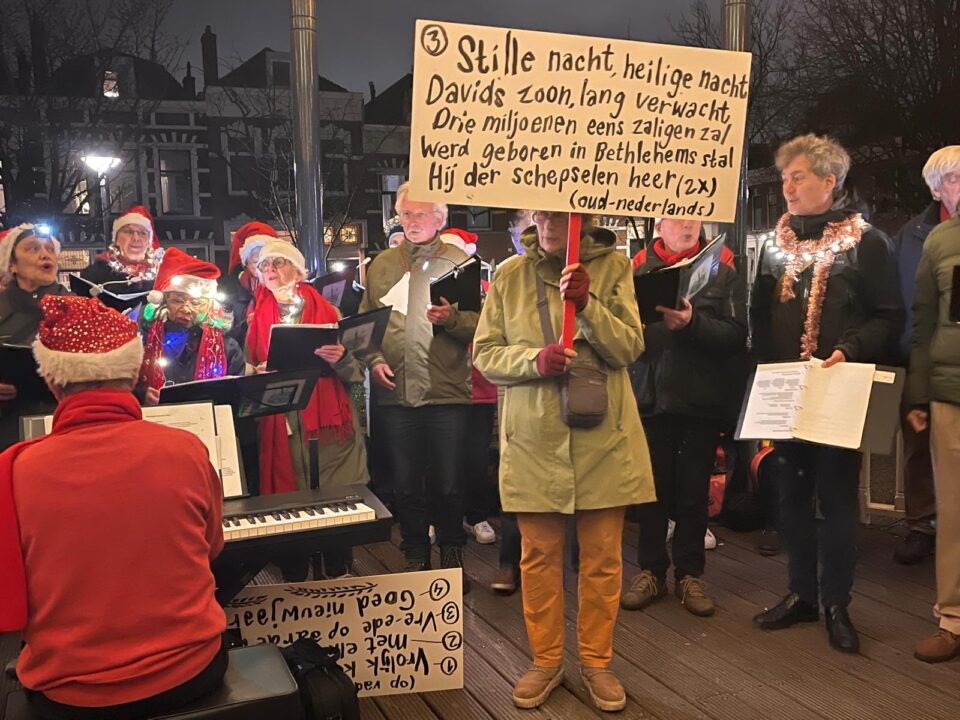 ③ Stille nacht, heilige nacht
Davids zoon, lang verwacht,
Drie miljoenen eens zaligen zal
Werd geboren in Bethlehems stal
Hij der schepselen heer (2x)
(oud-nederlands)
(op
① Vrolijk
② met
op aarde
③ Vre-ede
④ Goed nieuwjaar